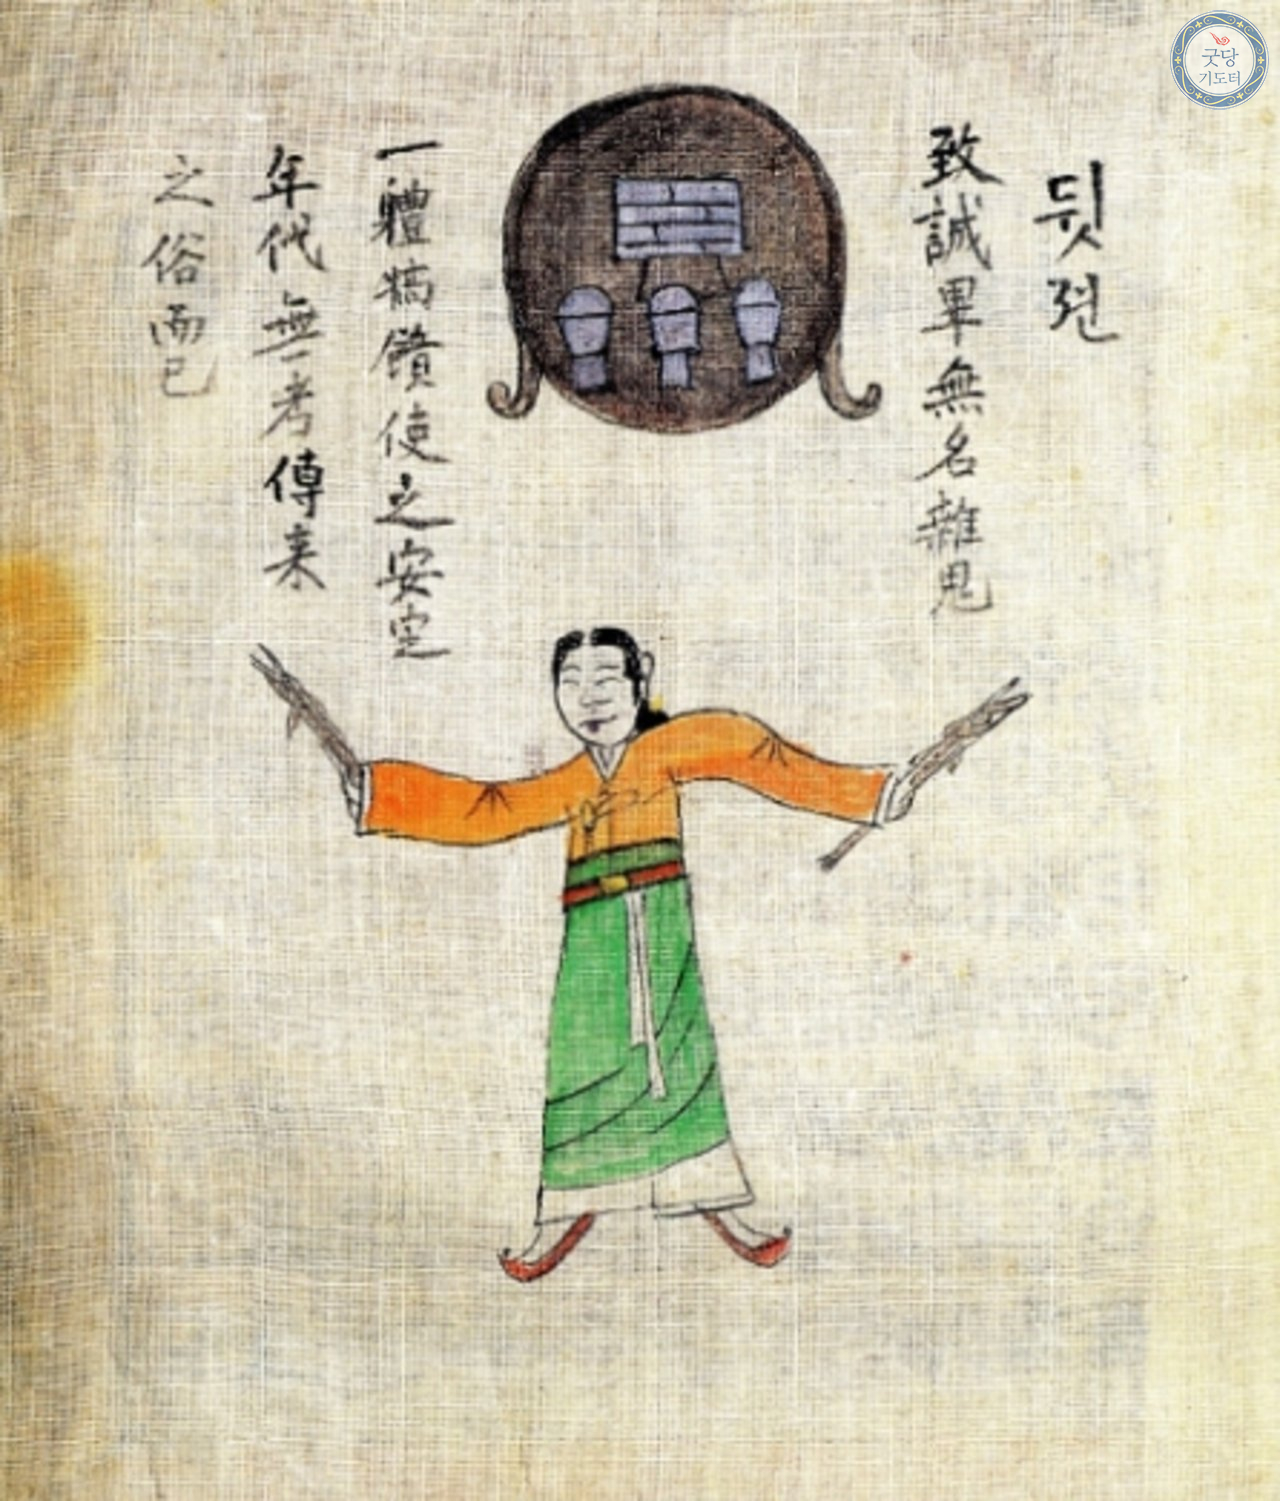 뒷젼
致誠畢無名雜鬼
一體犒饋使之安定
年代無考傳来
之俗而已
굿당
기도터